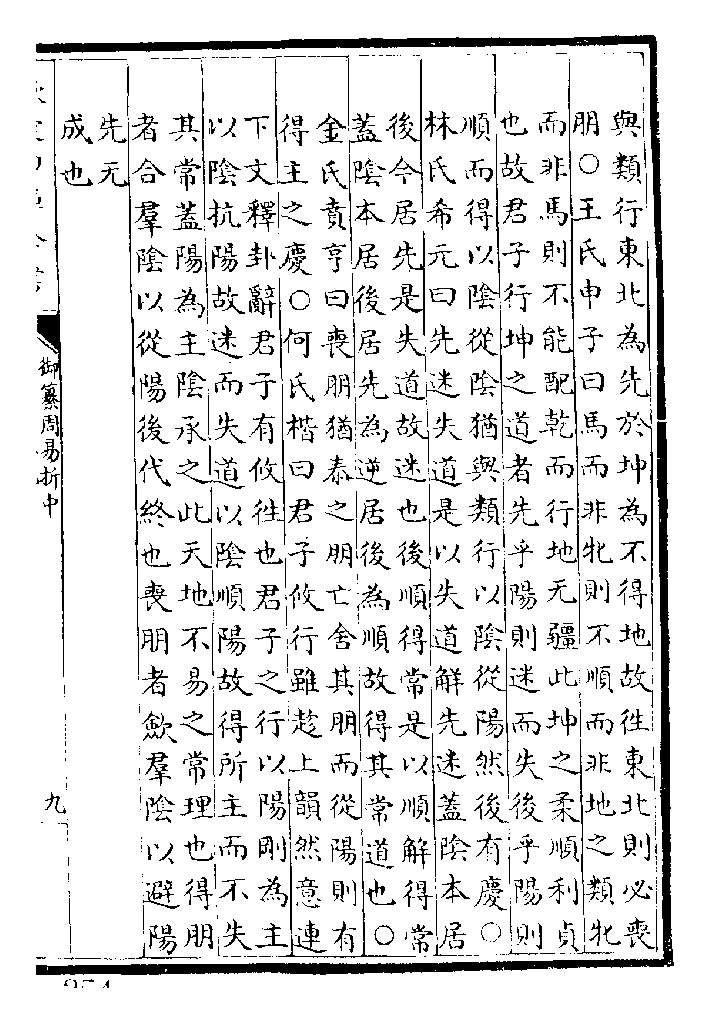 與類行東北為先於坤為不得地故徃東北則必喪
朋○王氏申子曰馬而非牝則不順而非地之類牝
而非馬則不能配乾而行地无疆此坤之柔順利貞
也故君子行坤之道者先乎陽則迷而失後乎陽則
順而得以陰從陰猶與類行以陰從陽然後有慶○
林氏希元曰先迷失道是以失道解先迷蓋陰本居
後今居先是失道故迷也後順得常是以順解得常
蓋陰本居後居先為逆居後為順故得其常道也○
金氏賁亨曰喪朋猶泰之朋亡舍其朋而從陽則有
得主之慶○何氏楷曰君子攸行雖趁上韻然意連
下文釋卦辭君子有攸徃也君子之行以陽剛為主
以陰抗陽故迷而失道以陰順陽故得所主而不失
其常蓋陽為主陰承之此天地不易之常理也得朋
者合羣陰以從陽後代終也喪朋者歛羣陰以避陽
先无
成也
御纂周易折中
九